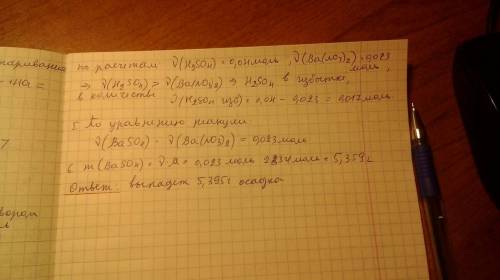 по расчетам ν(H₂SO₄) = 0,04 моль, ν(Ba(NO₃)₂) = 0,023 моль,
⇒ ν(H₂SO₄) > ν(Ba(NO₃)₂) ⇒ H₂SO₄ в избытке,
в количестве ν(H₂SO₄ изб) = 0,04 - 0,023 = 0,017 моль
5. По уравнению реакции
ν(BaSO₄) = ν(Ba(NO₃)₂) = 0,023 моль
6. m(BaSO₄) = ν·M = 0,023 моль · 233 г/моль = 5,359 г
Ответ: выпадет 5,395 г осадка